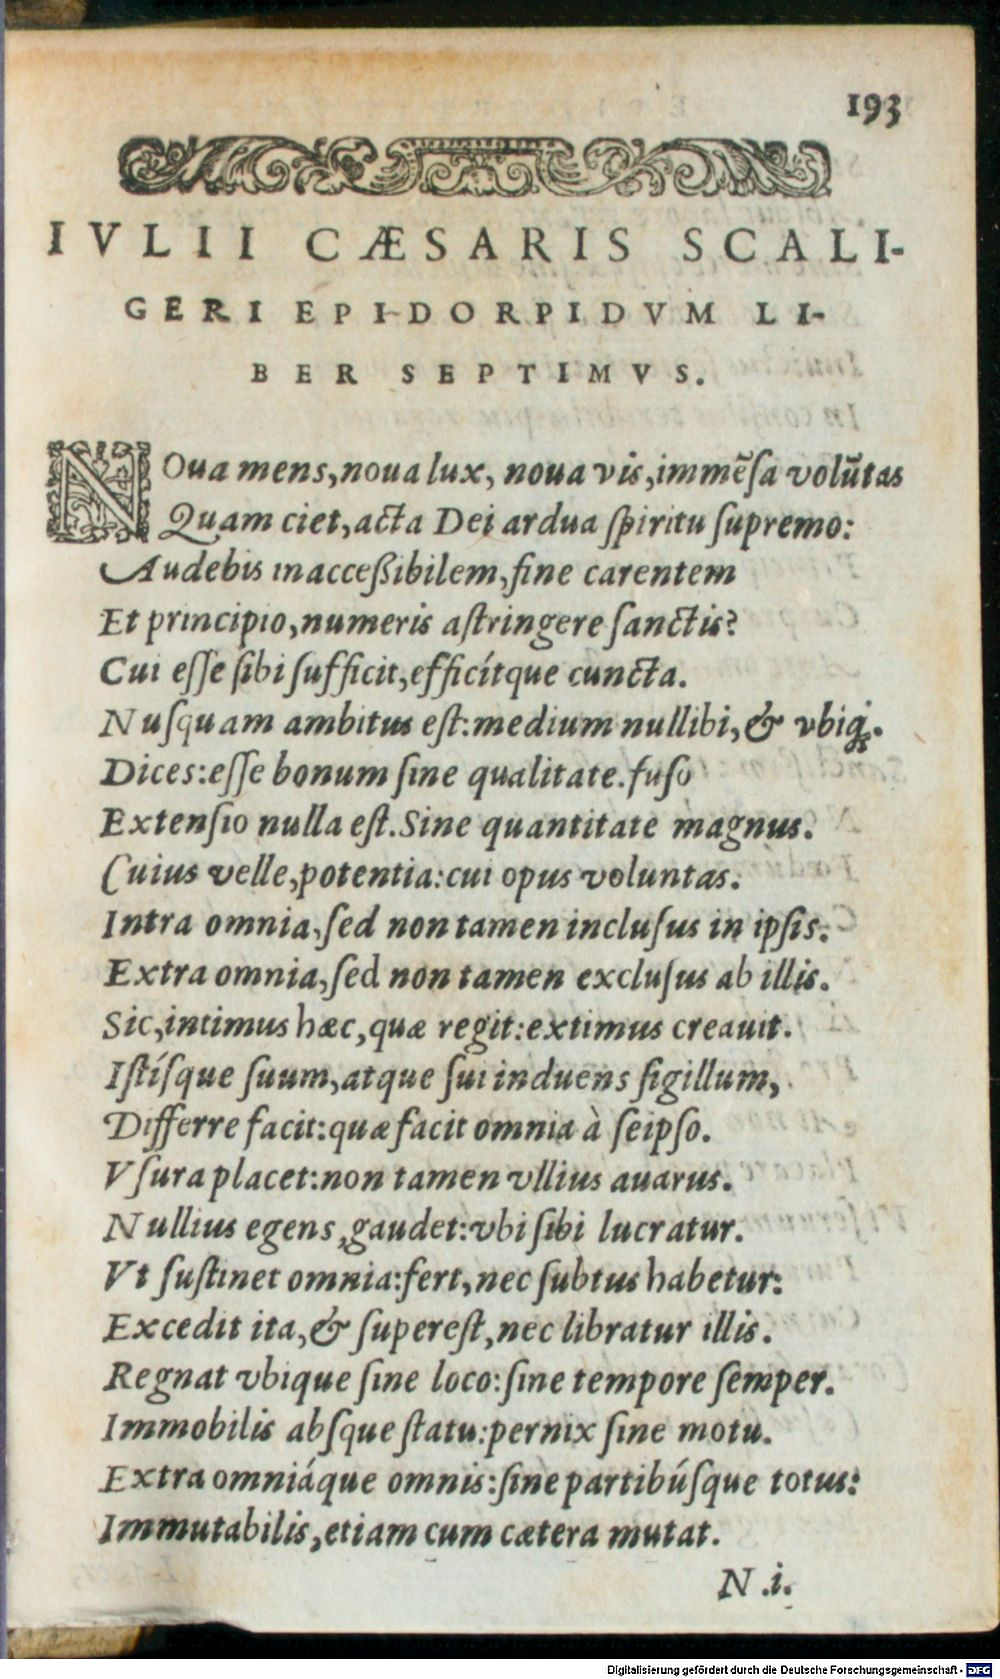 193
IVLII CÆSARIS SCALI-
GERI EPIDORPIDVM LI-
BER SEPTIMVS.
NOua mens, noua lux, noua vis, immēsa volūtas
Quam ciet, acta Dei ardua spiritu supremo:
Audebis inaccessibilem, fine carentem
Et principio, numeris astringere sanctis?
Cui esse sibi sufficit, efficítque cuncta.
Nusquam ambitus est: medium nullibi, & vbiq;.
Dices: esse bonum sine qualitate. fuso
Extensio nulla est. Sine quantitate magnus.
Cuius velle, potentia: cui opus voluntas.
Intra omnia, sed non tamen inclusus in ipsis.
Extra omnia, sed non tamen exclusus ab illis.
Sic, intimus hæc, quæ regit: extimus creauit.
Istísque suum, atque sui induens sigillum,
Differre facit: quæ facit omnia à seipso.
Vsura placet: non tamen vllius auarus.
Nullius egens, gaudet: vbi sibi lucratur.
Vt sustinet omnia: fert, nec subtus habetur:
Excedit ita, & superest, nec libratur illis.
Regnat vbique sine loco: sine tempore semper.
Immobilis absque statu: pernix sine motu.
Extra omniáque omnis: sine partibúsque totus:
Immutabilis, etiam cum cætera mutat.
N.i.
Digitalisierung gefördert durch die Deutsche Forschungsgemeinschaft - DFG